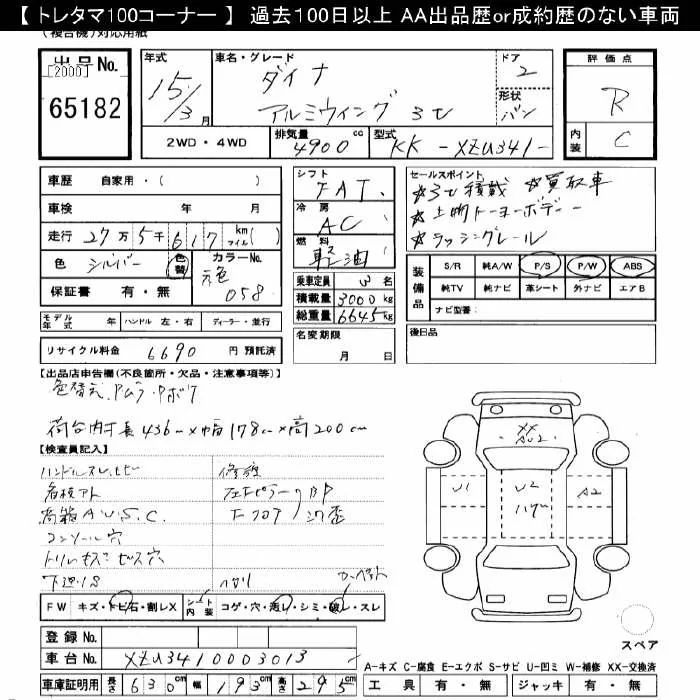 【 トレタマ100コーナー 】 過去100日以上 AA出品歴or成約歴のない車両
(複合機) 対応用紙
出品No.
[2000]
65182
年式
15/3月
車名・グレード
ダイナ
アルミウイング 3t
ドア
2
形状
バン
評価点
R
内装
C
2WD・4WD
排気量
4900cc
型式
KK-XZU341-
車歴 自家用・( )
車検 年 月
走行 27万5千617 km マイル( )
色 シルバー 色替
カラーNo.
元色 058
保証書 有・無
シフト
FAT.
冷房
AC
燃料
軽油
乗車定員 3名
積載量 3000kg
総重量 6645kg
名変期限
月 日
セールスポイント
☆3t積載 ☆買取車
☆上物トーヨーボデー
☆ラッシングレール
装備品
S/R 純A/W P/S P/W ABS
純TV 純ナビ 革シート 外ナビ エアB
ナビ型番:
後日品
モデル年式 年 ハンドル 左・右 ディーラー・並行
リサイクル料金 6690 円 預託済
【出品店申告欄(不良箇所・欠品・注意事項等)】
色替え、Pムラ・Pボケ
荷台内寸 長436cm×幅178cm×高200cm
【検査員記入】
修復
荷箱 A.U.S.C.
コンソール穴
トリムキズ ビス穴
下廻りS
U1
U2
ハゲ
A2
XX
AU2
FW キズ・トビ石・割レX
シート内装 コゲ・穴・汚レ・シミ・破レ・スレ
登録No.
車台No. XZU3410003013
車庫証明用 長さ 630cm 幅 193cm 高さ 295cm
スペア
A-キズ C-腐食 E-エクボ S-サビ U-凹ミ W-補修 XX-交換済
工具 有・無 ジャッキ 有・無